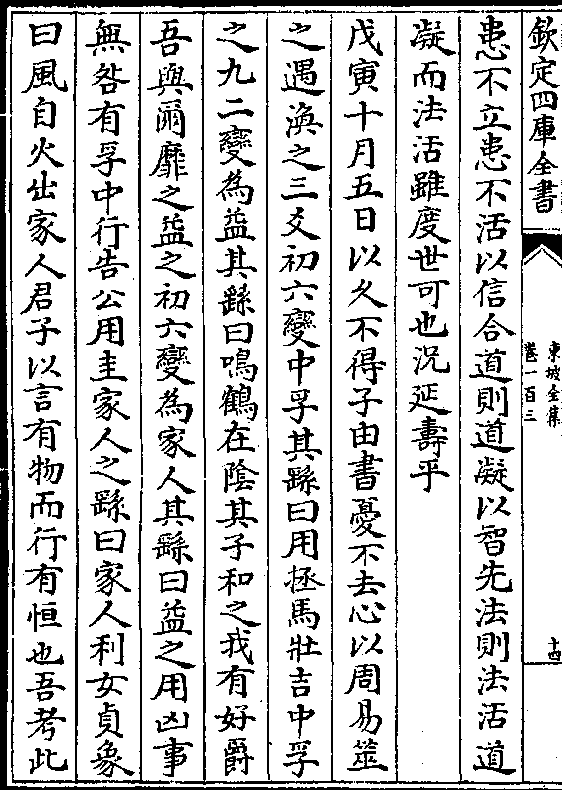 欽定四庫全書
東坡全集
卷一百三
十四
患不立患不活以信合道則道凝以智先法則法活道
凝而法活雖度世可也況延壽乎
戊寅十月五日以久不得子由書憂不去心以周易筮
之遇渙之三爻初六變中孚其繇曰用拯馬壯吉中孚
之九二變為益其繇曰鳴鶴在陰其子和之我有好爵
吾與爾靡之益之初六變為家人其繇曰益之用凶事
無咎有孚中行告公用圭家人之繇曰家人利女貞象
曰風自火出家人君子以言有物而行有恒也吾考此